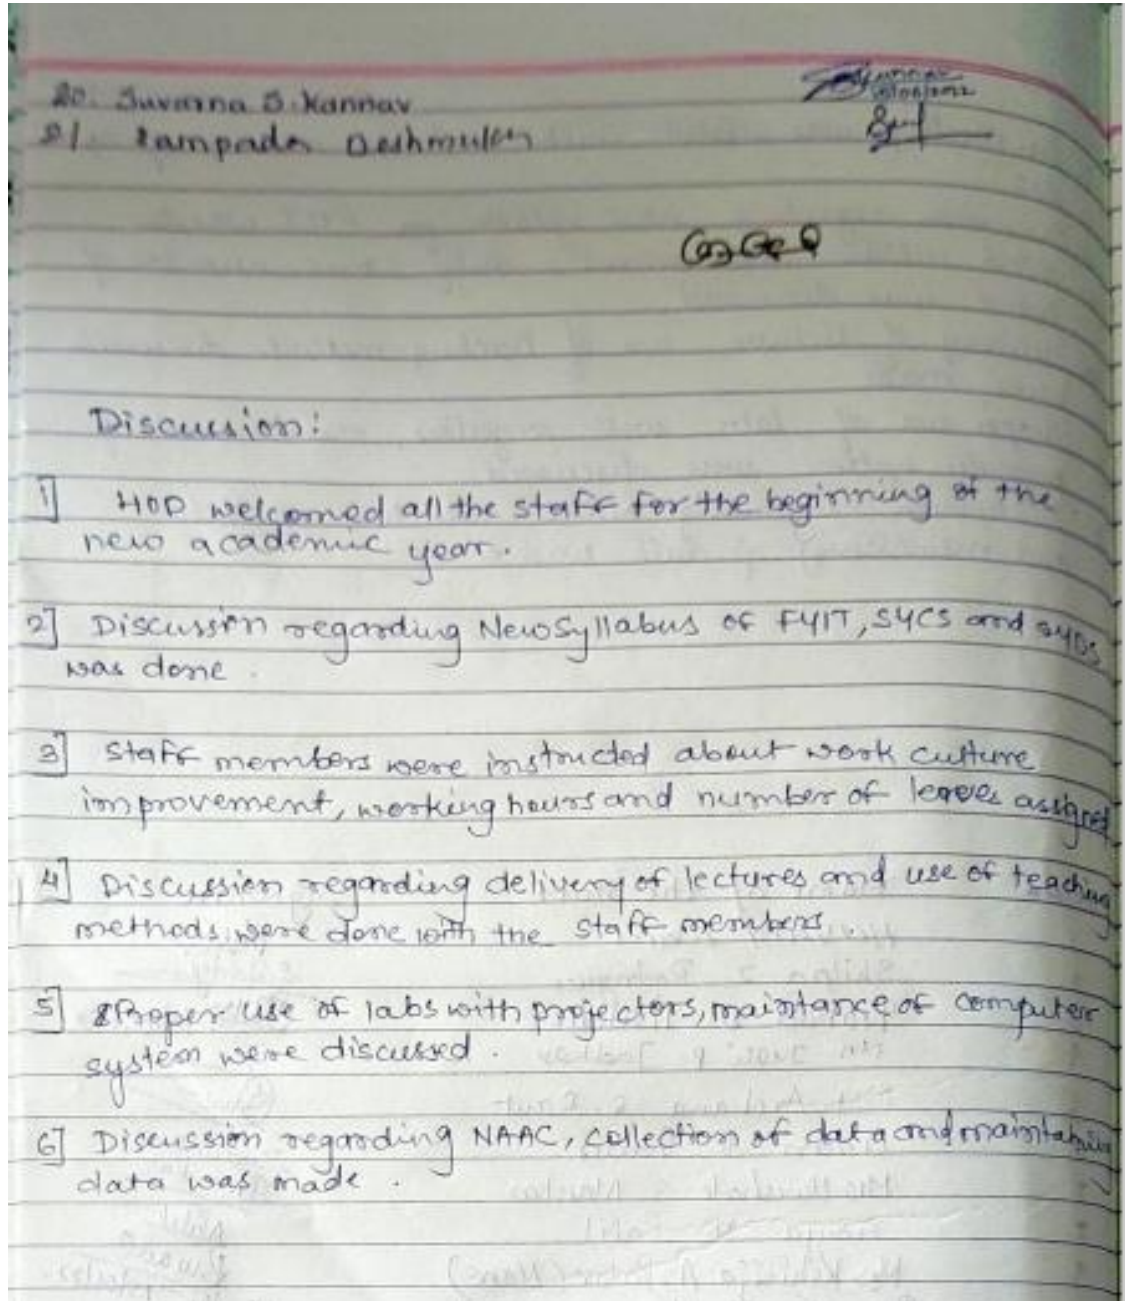 20. Suvarna S. Kannav
21. Sampada Deshmukh
Discussion:
1] HOD welcomed all the staff for the beginning of the
new academic year.
2] Discussion regarding New Syllabus of FYIT, SYCS and SYDS
was done.
3] Staff members were instructed about work culture
improvement, working hours and number of leaves assigned
4] Discussion regarding delivery of lectures and use of teaching
methods were done with the staff members.
5] Proper use of labs with projectors, maintance of computer
system were discussed.
6] Discussion regarding NAAC, collection of data and maintaining
data was made.